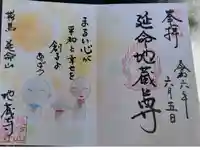 奉拝
延命地蔵尊
令和六年
六月五日
まるい心が
平和と幸せを
創るよ
あばっ
延命山
地蔵寺